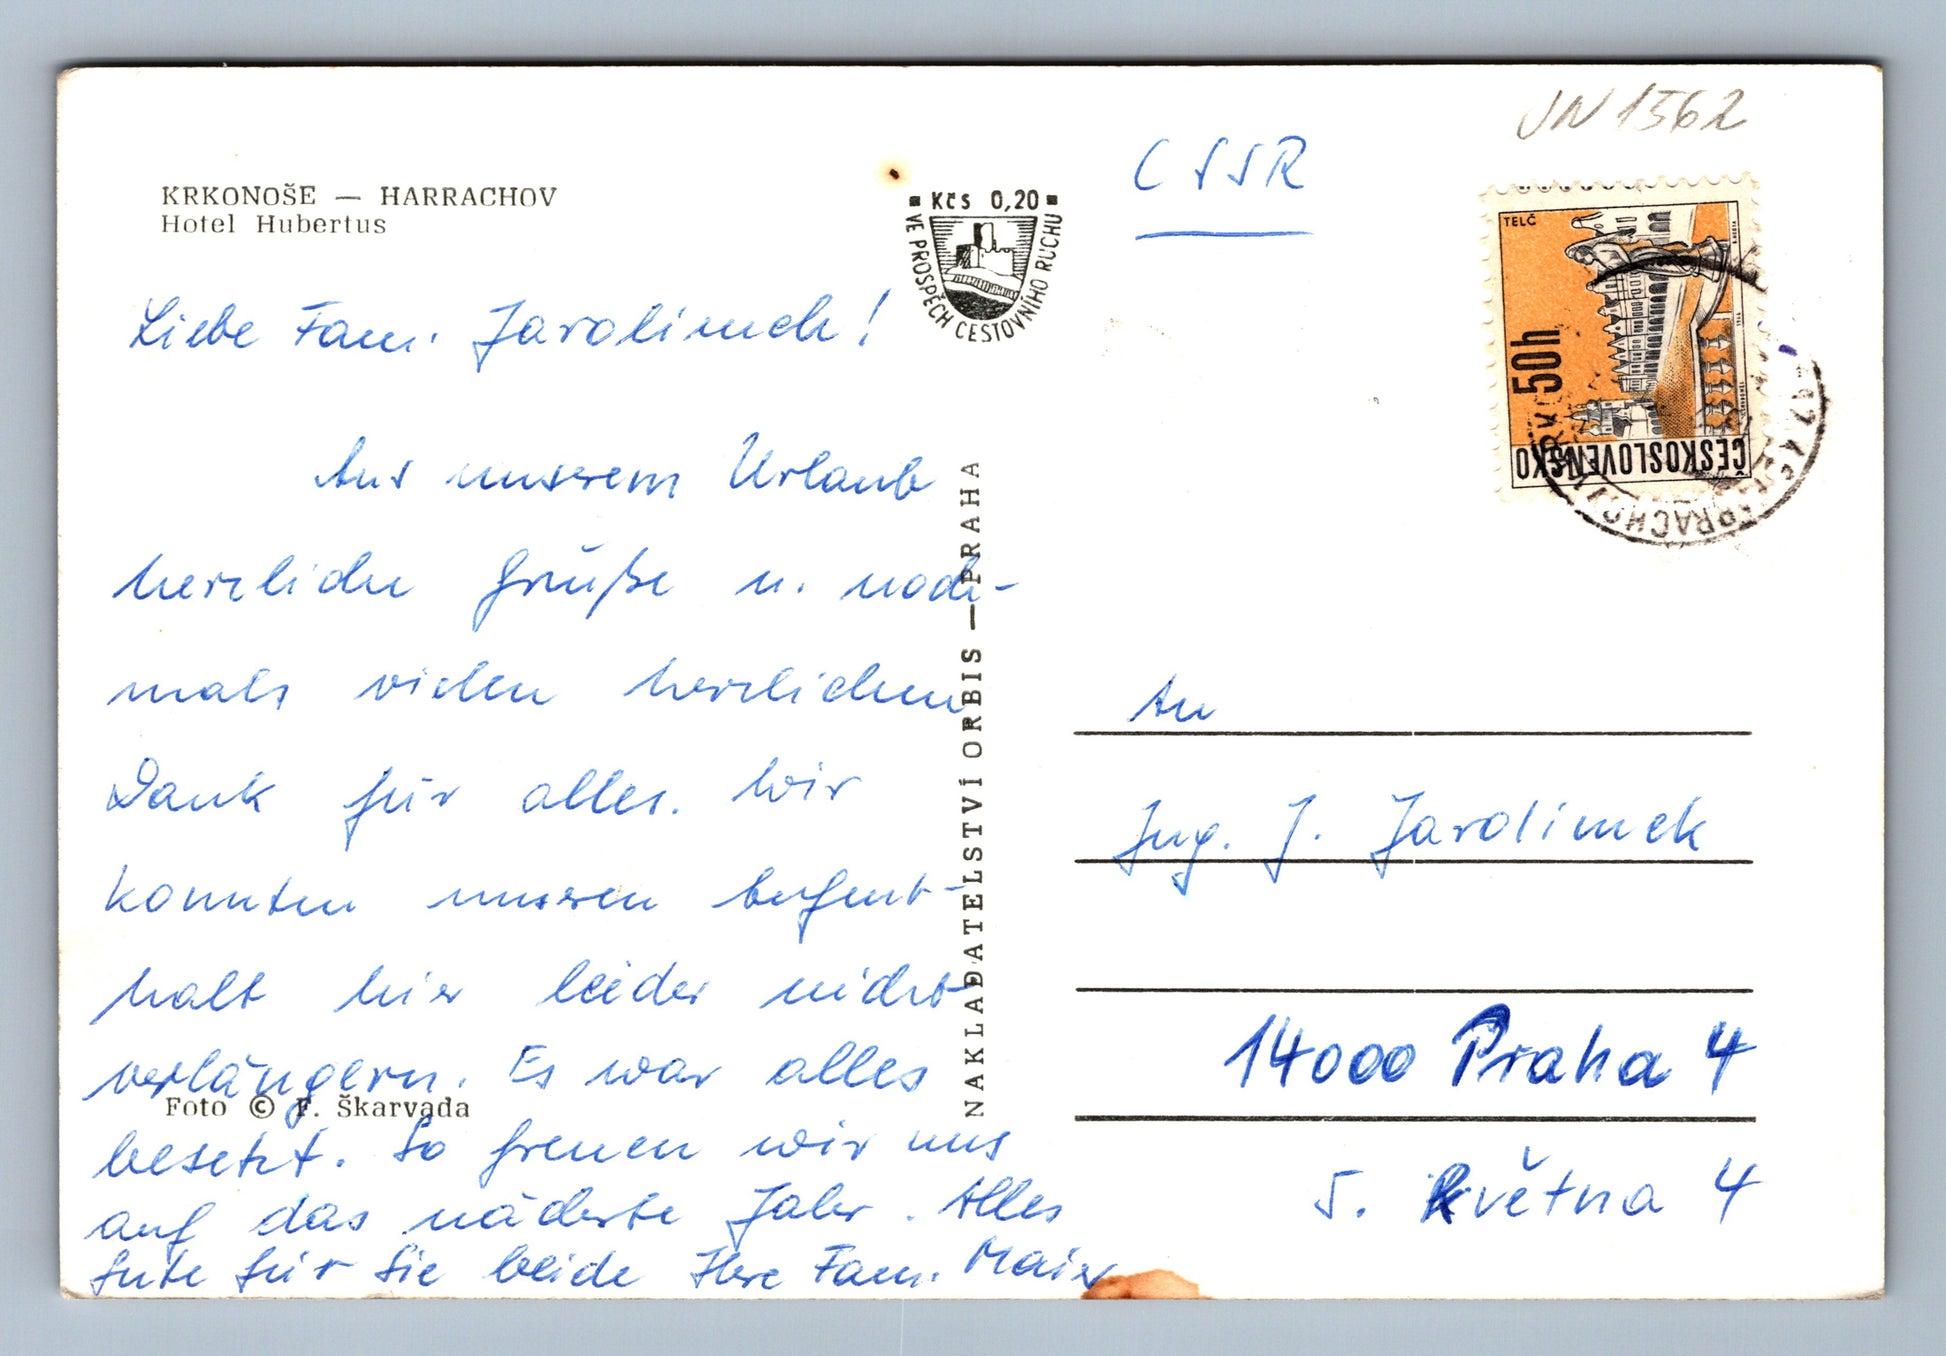 JN 1562
KRKONOŠE — HARRACHOV
Hotel Hubertus
Kčs 0,20
VE PROSPĚCH CESTOVNÍHO RUCHU
ČSSR
TELČ
50h
ČESKOSLOVENSKO
HARRACHOV
Liebe Fam. Jarolimek!
Aus unserem Urlaub
herzliche Grüße u. noch-
mals vielen herzlichen
Dank für alles. Wir
konnten unseren Aufent-
halt hier leider nicht
verlängern. Es war alles
besetzt. So freuen wir uns
auf das nächste Jahr. Alles
Gute für Sie beide Ihre Fam. Maier
Foto © F. Škarvada
NAKLADATELSTVÍ ORBIS — PRAHA
An
Ing. J. Jarolimek
14000 Praha 4
5. Května 4